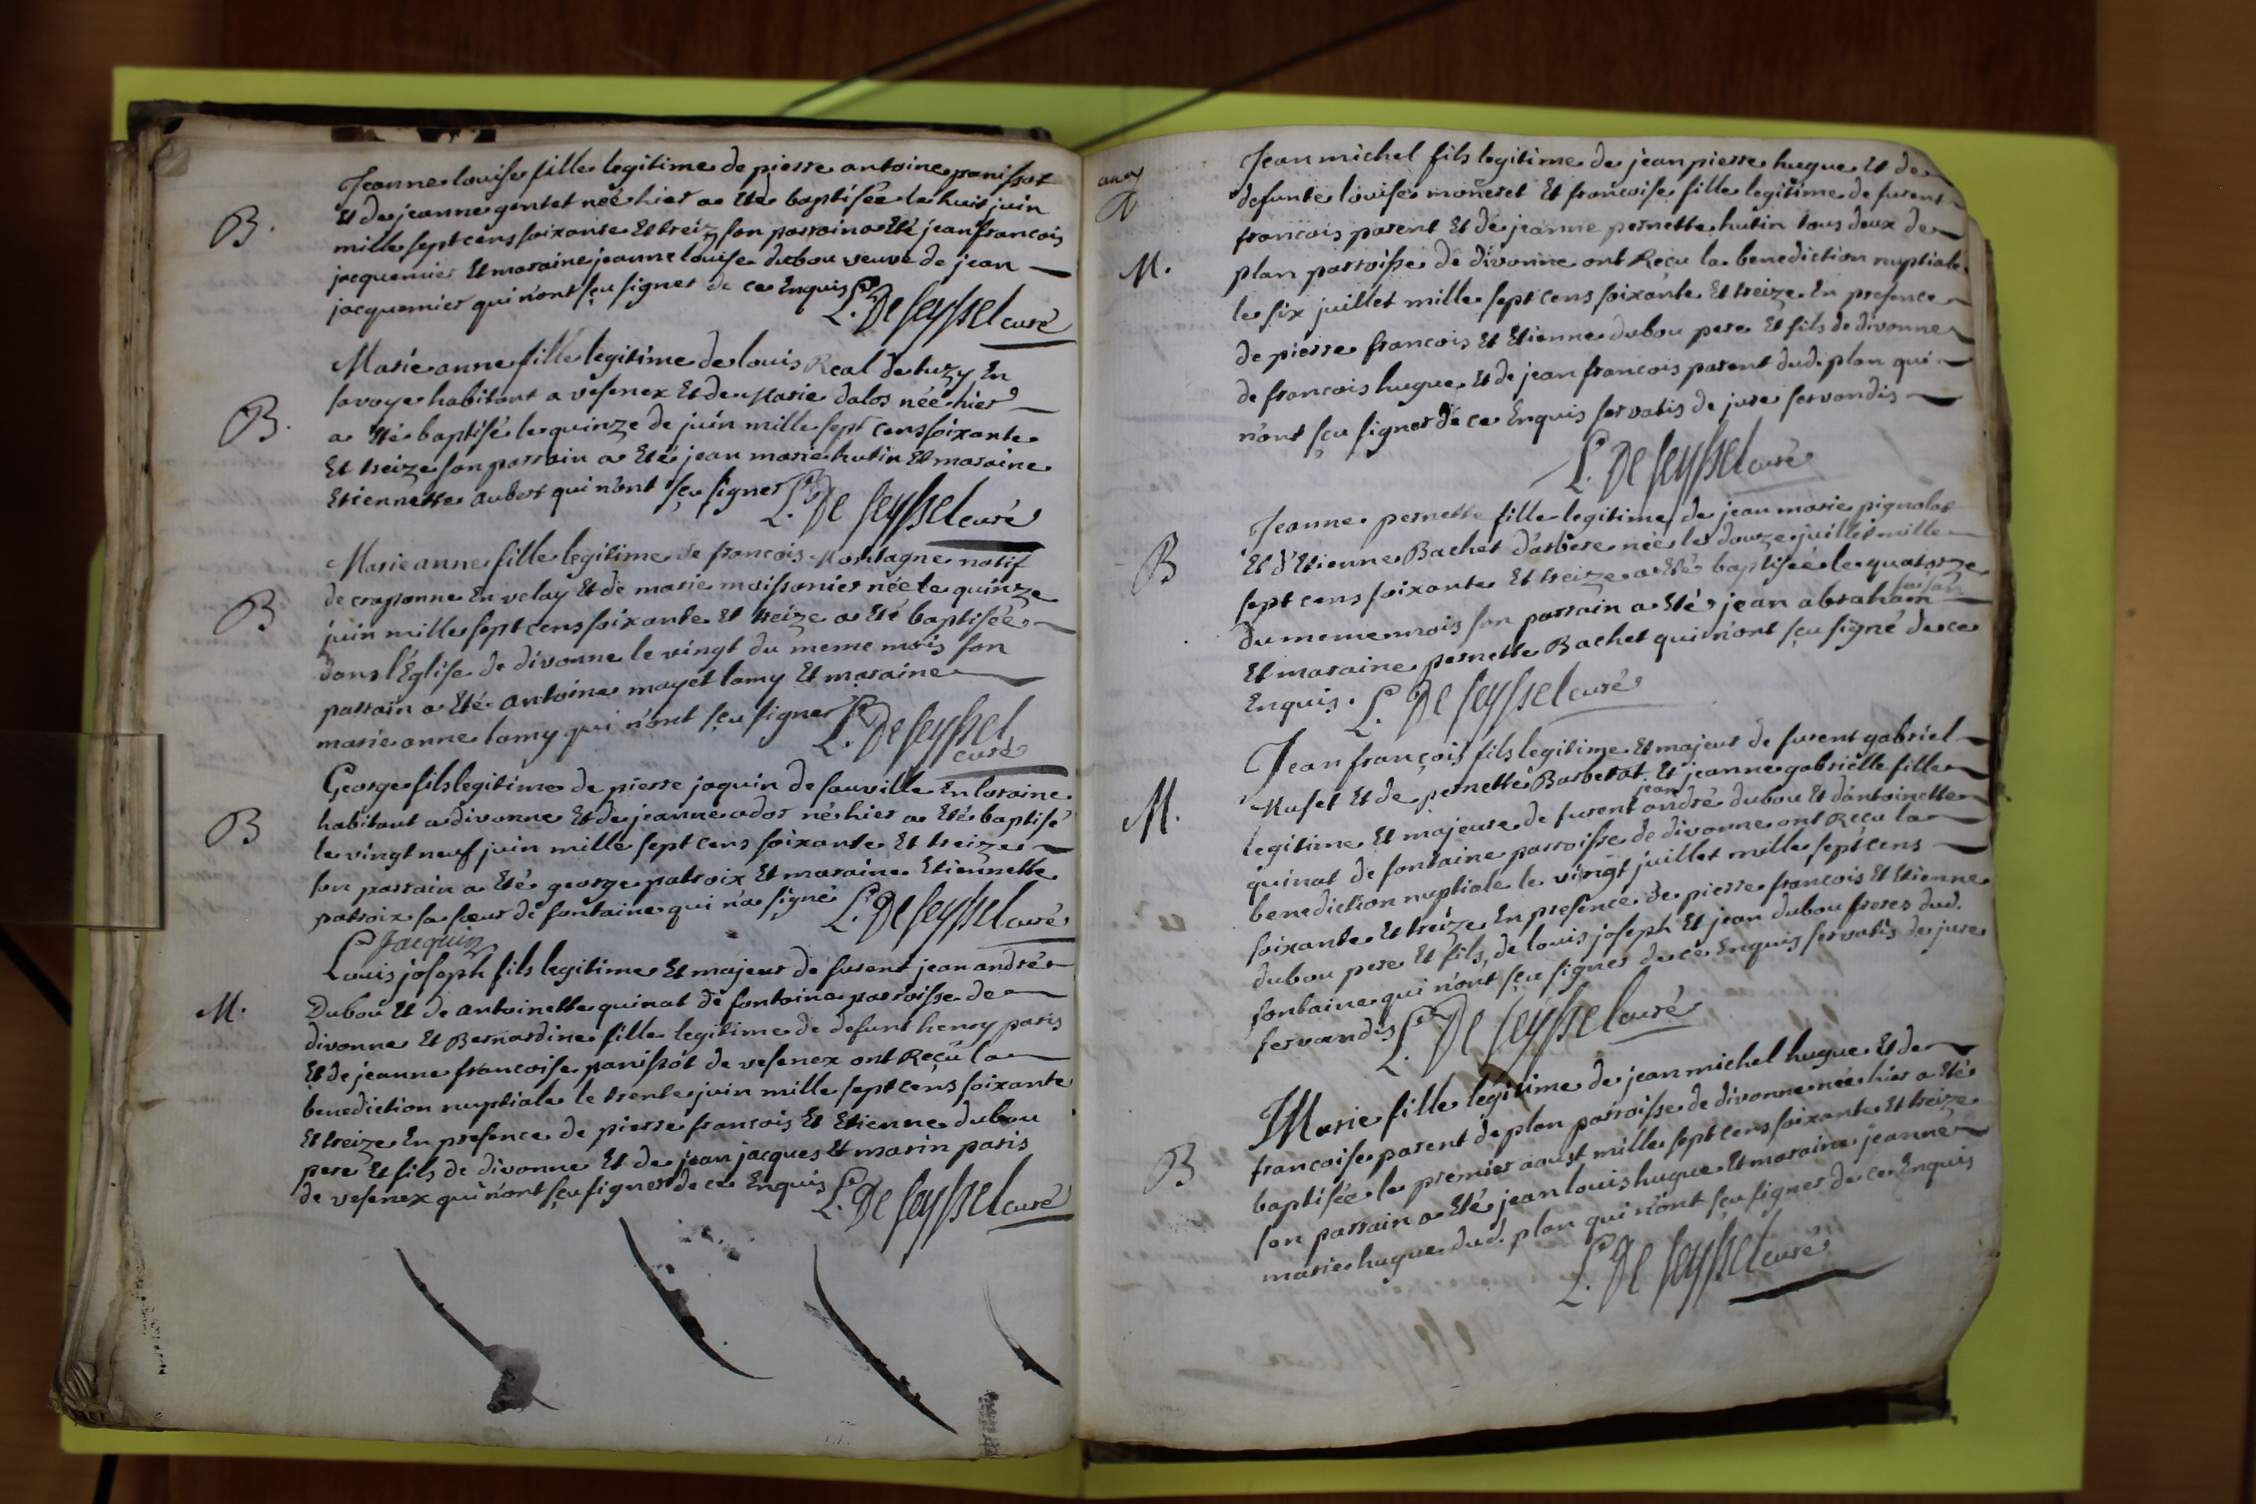 B.
Jeanne louise fille legitime de pierre antoine panissot
Et de jeanne gentet née hier a Eté baptisée le huit juin
mille sept cens soixante Et treiz son parrain a Eté jean francois
jacquemier Et maraine jeanne louise dubou veuve de jean
jacquemier qui n'ont sçu signer de ce Enquis
L. De seyssel curé
B.
Marie anne fille legitime de louis Real de En
savoye habitant a vesenex Et de Marie dalos née hier
a Eté baptisé le quinze de juin mille sept cens soixante
Et treize son parrain a Eté jean marie hutin Et maraine
Etiennette aubert qui n'ont sçu signer
L. De seyssel curé
B
Marie anne fille legitime de francois Montagne natif
de craponne En velay Et de marie moissonier née le quinze
juin mille sept cens soixante Et treize a Eté baptisée
dans l'Eglise de divonne le vingt du meme mois son
parrain a Eté antoine mayet lamy Et maraine
marie anne lamy qui n'ont sçu signer
L. De seyssel
curé
B
George fils legitime de pierre jaquin de sauville En loraine
habitant a divonne Et de jeanne ador né hier a Eté baptisé
le vingt neuf juin mille sept cens soixante Et treize
son parrain a Eté george patroix Et maraine Etiennette
patroix sa sœur de fontaine qui n'a signé
L. De seyssel curé
Jacquin
M.
Louis joseph fils legitime Et majeur de furent jean andré
Dubou Et de antoinette quinat de fontaine parroisse de
divonne Et Bernardine fille legitime de defunt henry paris
Et de jeanne francoise panissot de vesenex ont Reçu la
benediction nuptiale le trente juin mille sept cens soixante
Et treize En presence de pierre francois Et Etienne dubou
pere Et fils de divonne Et de jean jacques Et marin paris
de vesenex qui n'ont sçu signer de ce Enquis
L. De seyssel curé
M.
Jean michel fils legitime de jean pierre hugue Et de
defunte louise moneret Et francoise fille legitime de furent
francois parent Et de jeanne pernette hutin tous deux de
plan parroisse de divonne ont Reçu la benediction nuptiale
le six juillet mille sept cens soixante Et treize En presence
de pierre francois Et Etienne dubou pere Et fils de divonne
de francois hugue Et de jean francois parent dud. plan qui
n'ont sçu signer de ce Enquis servatis de jure servandis
L. De seyssel curé
B
Jeanne pernette fille legitime de jean marie pignolat
Et d'Etienne Bachet d'arbere née le douze juillet mille
sept cens soixante Et treize a Eté baptisée le quatorze
du meme mois son parrain a Eté jean abraham
Et maraine pernette Bachet qui n'ont sçu signé de ce
Enquis.
L. De seyssel curé
M.
Jean francois fils legitime Et majeur de furent gabriel
Rufet Et de pernette Barberat Et jeanne gabrielle fille
legitime Et majeure de furent jean andré dubou Et d'antoinette
quinat de fontaine parroisse de divonne ont Reçu la
benediction nuptiale le vingt juillet mille sept cens
soixante Et treize En presence de pierre francois Et Etienne
dubou pere Et fils, de louis joseph Et jean dubou freres dud.
fontaine qui n'ont sçu signer de ce Enquis servatis de jure
servandis
L. De seyssel curé
B
Marie fille legitime de jean michel hugue Et de
francoise parent de plan parroisse de divonne née hier a Eté
baptisée le premier aoust mille sept cens soixante Et treize
son parrain a Eté jean louis hugue Et maraine jeanne
marie hugue dud. plan qui n'ont sçu signer de ce Enquis
L. De seyssel curé